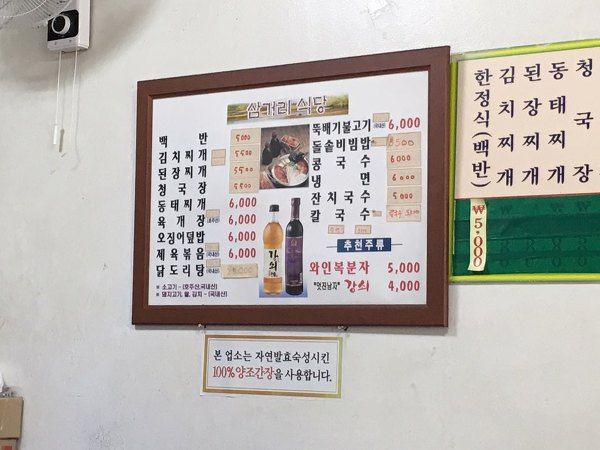 삼거리 식당
백반 5000
김치찌개 5500
된장찌개 5500
청국장 5500
동태찌개 6,000
육개장 (호주산) 6,000
오징어덮밥 6,000
제육볶음 (국내산) 6,000
닭도리탕 (국내산)
※ 소고기 - (호주산,국내산)
※ 돼지고기, 쌀, 김치 - (국내산)
뚝배기불고기 (국내산) 6,000
돌솥비빔밥
콩국수 6000
냉면 6000
잔치국수 5000
칼국수
추천주류
와인복분자 5,000
"멋진남자" 강쇠 4,000
강쇠
본 업소는 자연발효숙성시킨
100% 양조간장을 사용합니다.
한정식(백반)
김치찌개
된장찌개
동태찌개
청국장
₩5,000